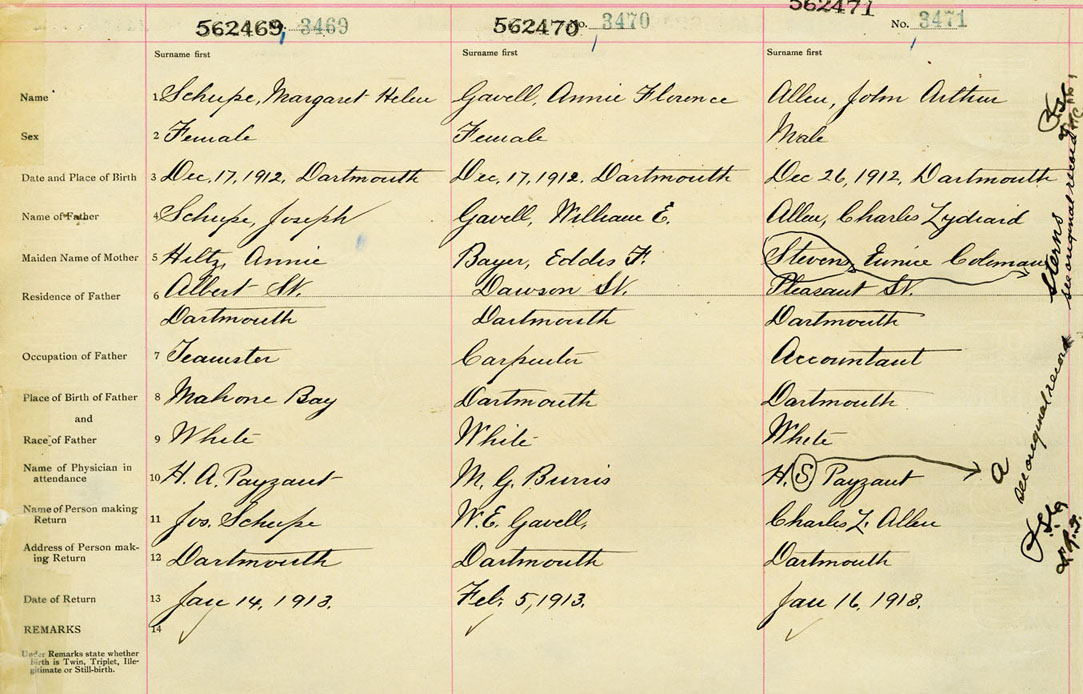 562469 No. 3469 562470 No. 3470 562471 No. 3471
Surname first Surname first Surname first
Name 1 Schupe, Margaret Helen Gavell, Annie Florence Allen, John Arthur
Sex 2 Female Female Male
Date and Place of Birth 3 Dec. 17, 1912. Dartmouth Dec. 17, 1912. Dartmouth Dec 26, 1912, Dartmouth
Name of Father 4 Schupe, Joseph Gavell, William E. Allen, Charles Lydiard
Maiden Name of Mother 5 Hiltz, Annie Bayer, Eddis F. Stevens, Eunice Coleman
Residence of Father 6 Albert St. Dawson St. Pleasant St.
Dartmouth Dartmouth Dartmouth
Occupation of Father 7 Teamster Carpenter Accountant
Place of Birth of Father 8 Mahone Bay Dartmouth Dartmouth
and
Race of Father 9 White White White
Name of Physician in
attendance 10 H. A. Payzant M. G. Burris H. S Payzant
Name of Person making
Return 11 Jos. Schupe W. E. Gavell, Charles L. Allen
Address of Person mak-
ing Return 12 Dartmouth Dartmouth Dartmouth
Date of Return 13 Jan 14, 1913. Feb. 5, 1913. Jan 16, 1913.
REMARKS 14
Under Remarks state whether
birth is Twin, Triplet, Ille-
gitimate or Still-birth.
Sterns
see original record
a
see original record